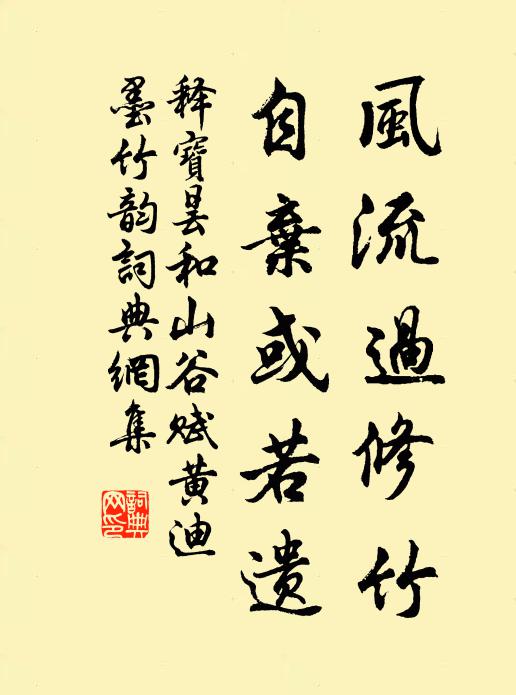 風流過修竹
自棄或若遺
释寶曇和山谷赋黄迪
墨竹韵詞典網集
詞典网印